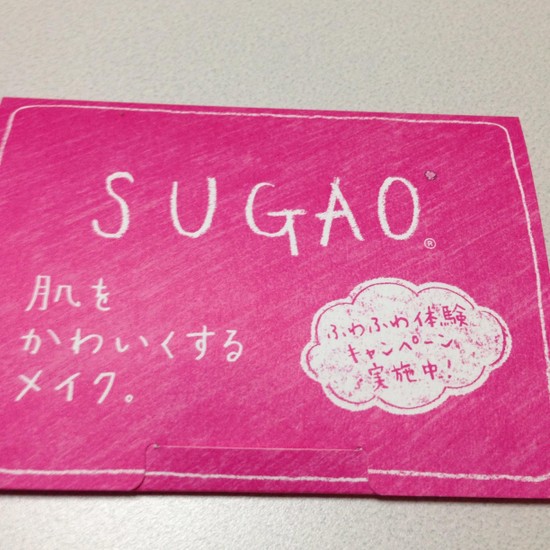 SUGAO®
肌を
かわいくする
メイク。
ふわふわ体験
キャンペーン
実施中!